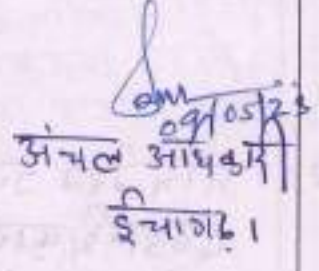 09/05/23
अंचल अधिकारी
ईचागढ़।